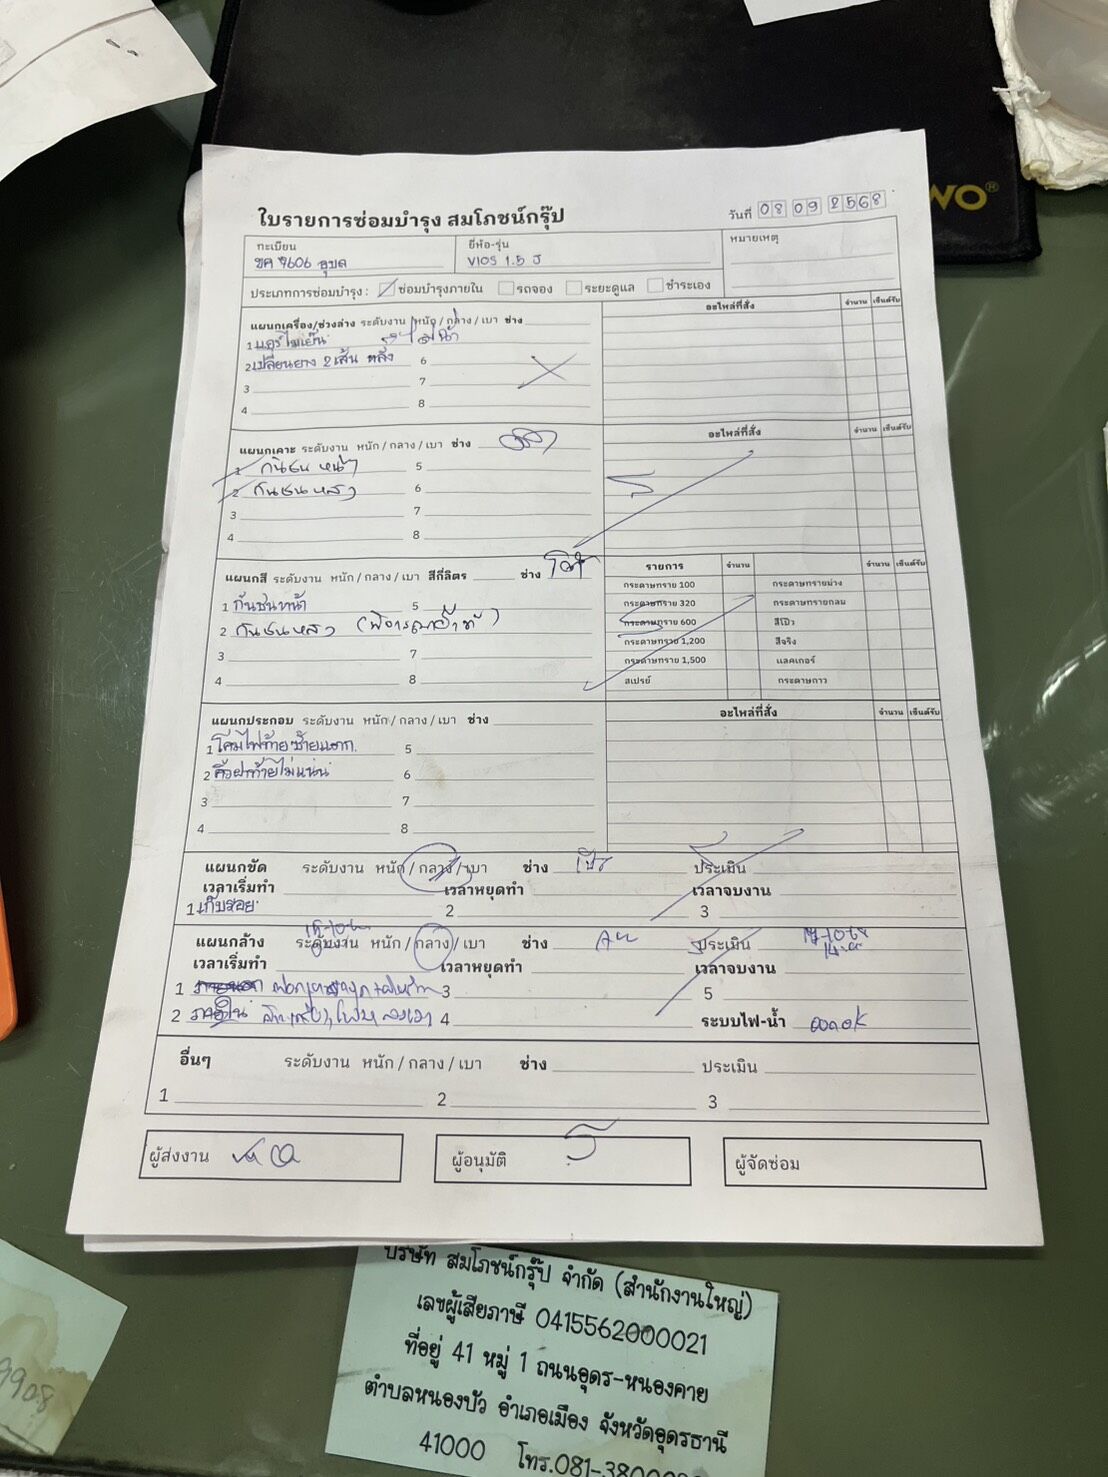 WO®
ใบรายการซ่อมบำรุง สมโภชน์กรุ๊ป
วันที่ 08 09 2568
ทะเบียน ยี่ห้อ-รุ่น หมายเหตุ
ขค 9606 อุบล VIOS 1.5 J
ประเภทการซ่อมบำรุง : ซ่อมบำรุงภายใน รถจอง ระยะดูแล ชำระเอง
แผนกเครื่อง/ช่วงล่าง ระดับงาน หนัก / กลาง / เบา ช่าง อะไหล่ที่สั่ง จำนวน เซ็นต์รับ
1 แอร์ไม่เย็น
2 เปลี่ยนยาง 2 เส้น หลัง 6
3 7
4 8
แผนกเคาะ ระดับงาน หนัก / กลาง / เบา ช่าง อะไหล่ที่สั่ง จำนวน เซ็นต์รับ
1 กันชนหน้า 5
2 กันชนหลัง 6
3 7
4 8
แผนกสี ระดับงาน หนัก / กลาง / เบา สีกี่ลิตร ช่าง รายการ จำนวน จำนวน เซ็นต์รับ
1 กันชนหน้า 5
2 กันชนหลัง 
3 7
4 8
กระดาษทราย 100 กระดาษทรายม่วง
กระดาษทราย 320 กระดาษทรายกลม
กระดาษทราย 600 สีโป๊ว
กระดาษทราย 1,200 สีจริง
กระดาษทราย 1,500 แลคเกอร์
สเปรย์ กระดาษกาว
แผนกประกอบ ระดับงาน หนัก / กลาง / เบา ช่าง อะไหล่ที่สั่ง จำนวน เซ็นต์รับ
1 โคมไฟท้ายซ้ายแตก 5
2 คิ้วฝาท้ายไม่แน่น 6
3 7
4 8
แผนกขัด ระดับงาน หนัก / กลาง / เบา ช่าง ประเมิน
เวลาเริ่มทำ เวลาหยุดทำ เวลาจบงาน
1 เก็บรอย 2 3
แผนกล้าง ระดับงาน หนัก / กลาง / เบา ช่าง ประเมิน
เวลาเริ่มทำ เวลาหยุดทำ เวลาจบงาน
1 3 5
2 ภายใน 4 ระบบไฟ-น้ำ
อื่นๆ ระดับงาน หนัก / กลาง / เบา ช่าง ประเมิน
1 2 3
ผู้ส่งงาน ผู้อนุมัติ ผู้จัดซ่อม
บริษัท สมโภชน์กรุ๊ป จำกัด (สำนักงานใหญ่)
เลขผู้เสียภาษี 0415562000021
ที่อยู่ 41 หมู่ 1 ถนนอุดร-หนองคาย
ตำบลหนองบัว อำเภอเมือง จังหวัดอุดรธานี
41000 โทร.081-38000
9908